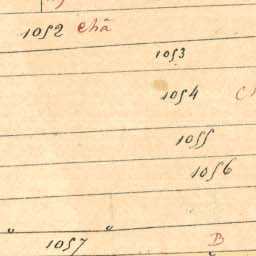 1052 Chā
1053
1054
1055
1056
" "
1057 B